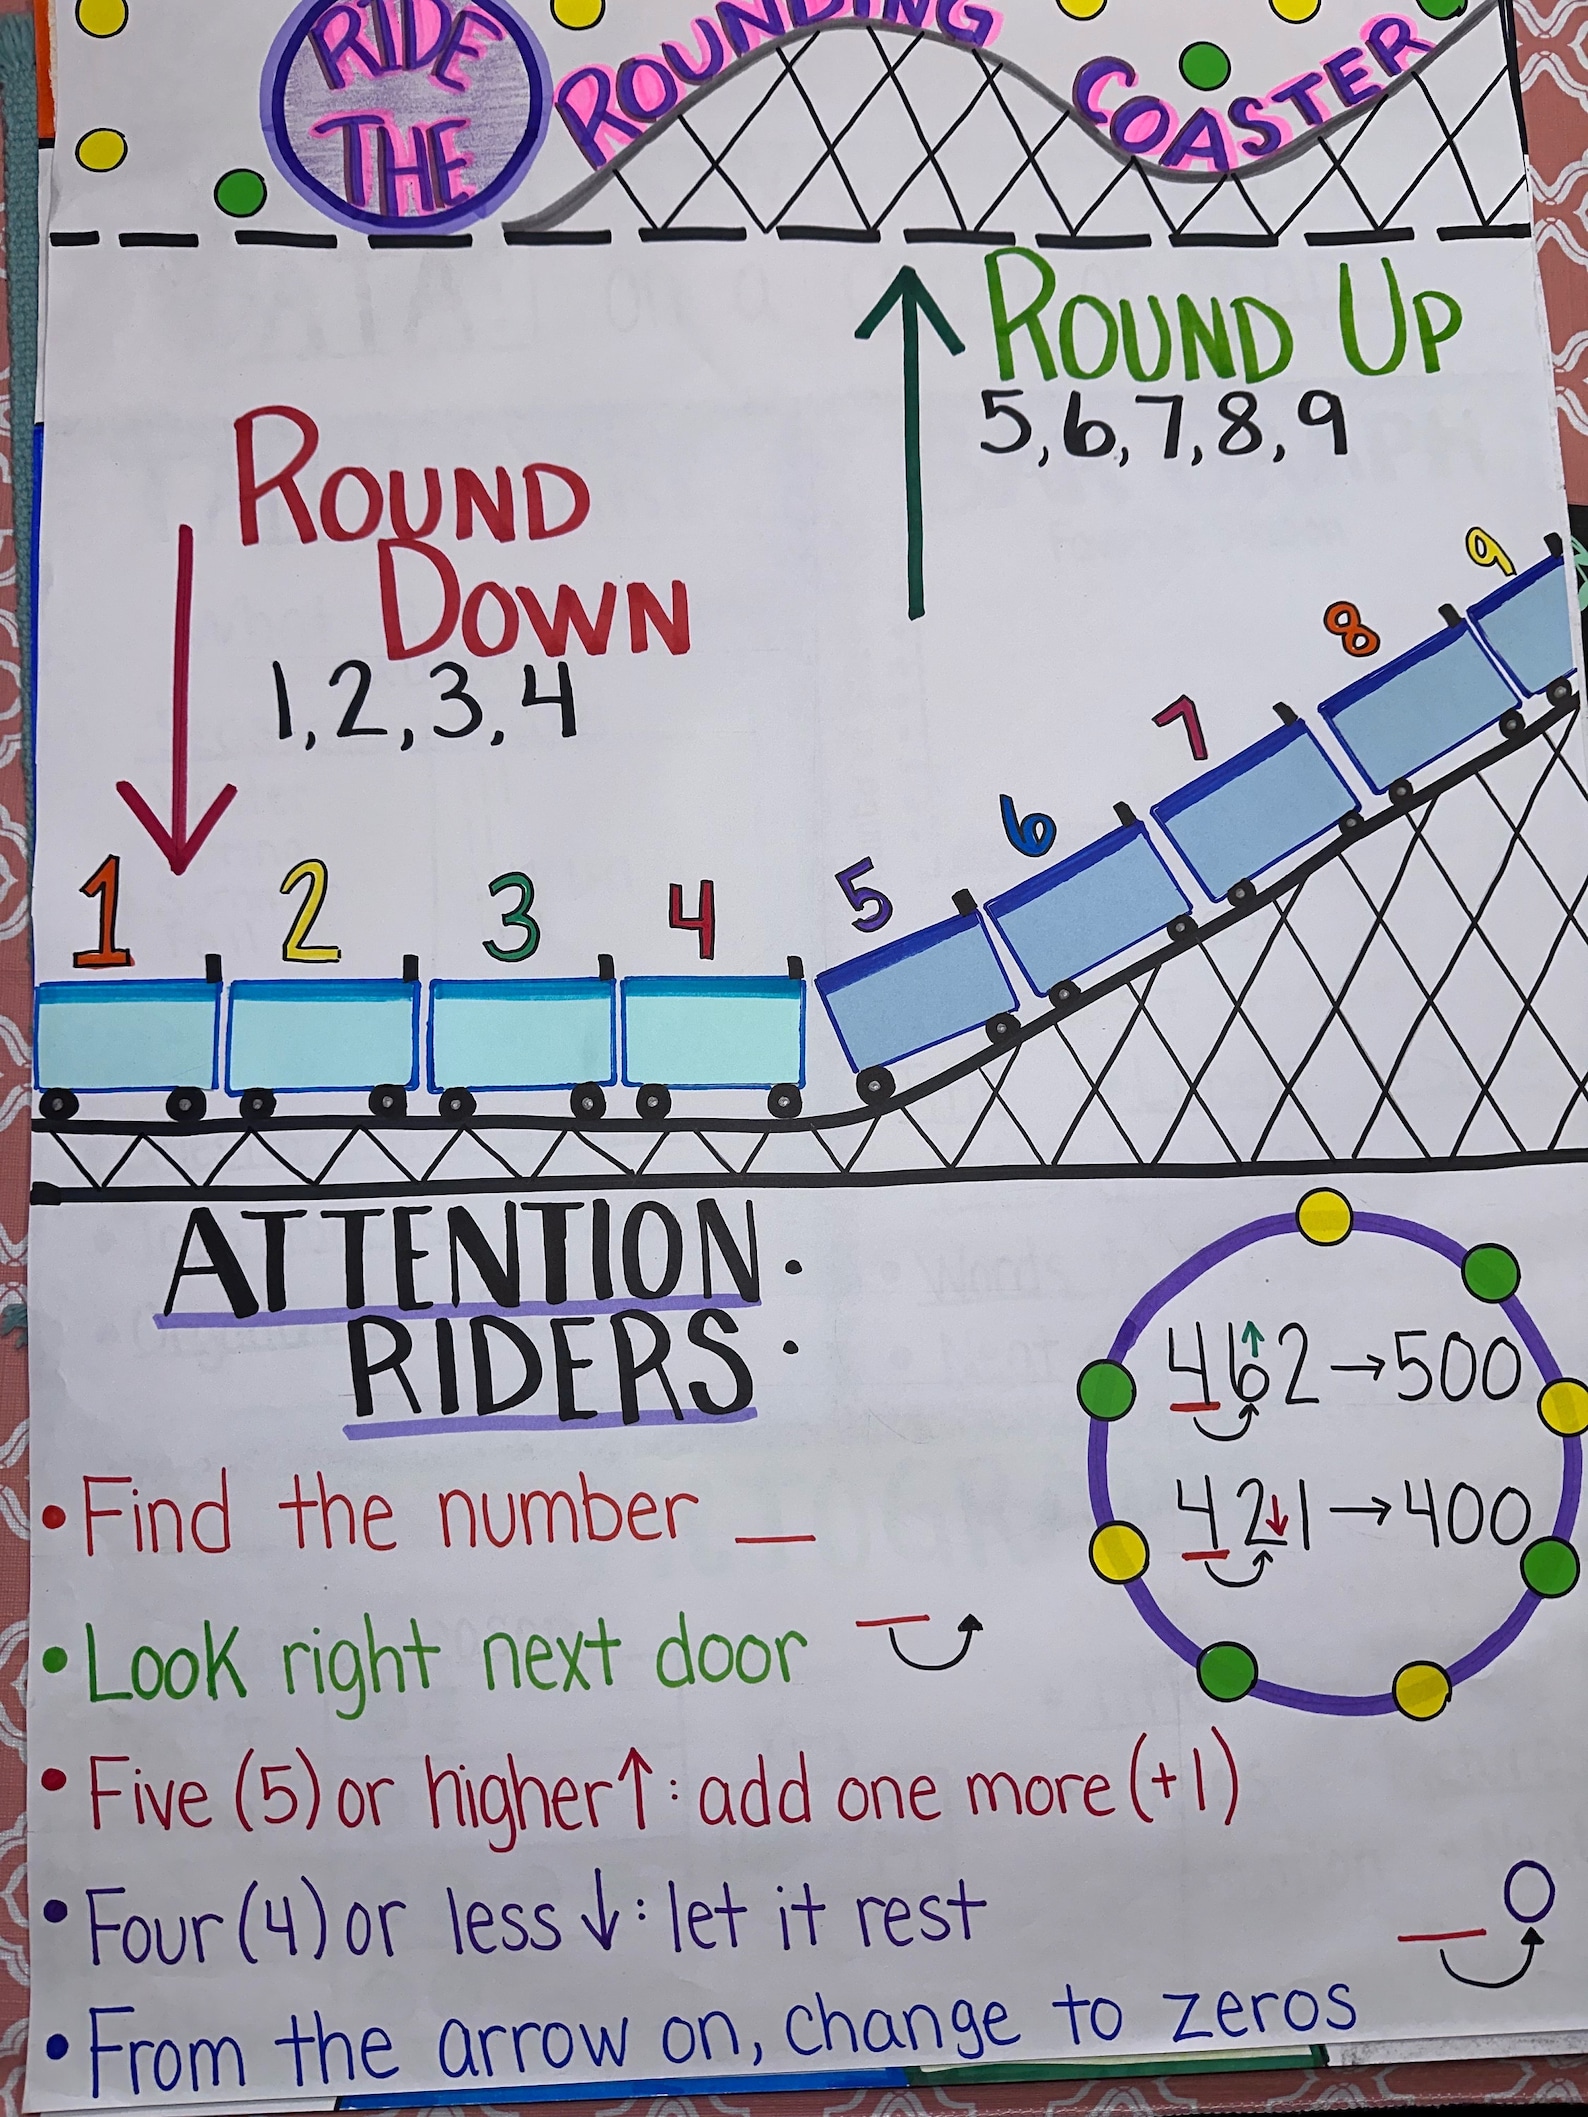 RIDE
THE
ROUNDING
COASTER
ROUND UP
5, 6, 7, 8, 9
ROUND
DOWN
1, 2, 3, 4
1 2 3 4 5 6 7 8 9
ATTENTION:
RIDERS:
462 → 500
421 → 400
• Find the number __
• Look right next door
• Five (5) or higher ↑: add one more (+1)
• Four (4) or less ↓: let it rest
0
• From the arrow on, change to zeros